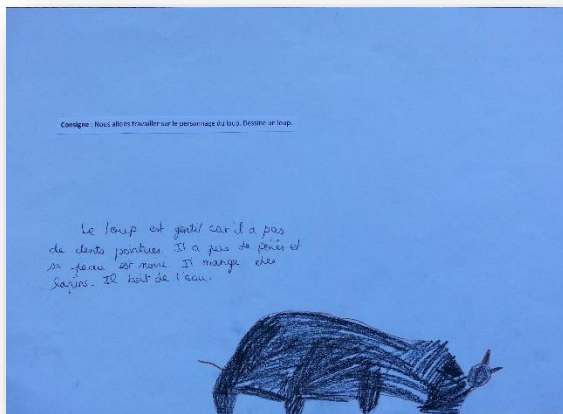 Consigne : Nous allons travailler sur le personnage du loup. Dessine un loup.
Le loup est gentil car il a pas
de dents pointues. Il a pas de poils et
sa peau est noire. Il mange des
lapins. Il boit de l'eau.